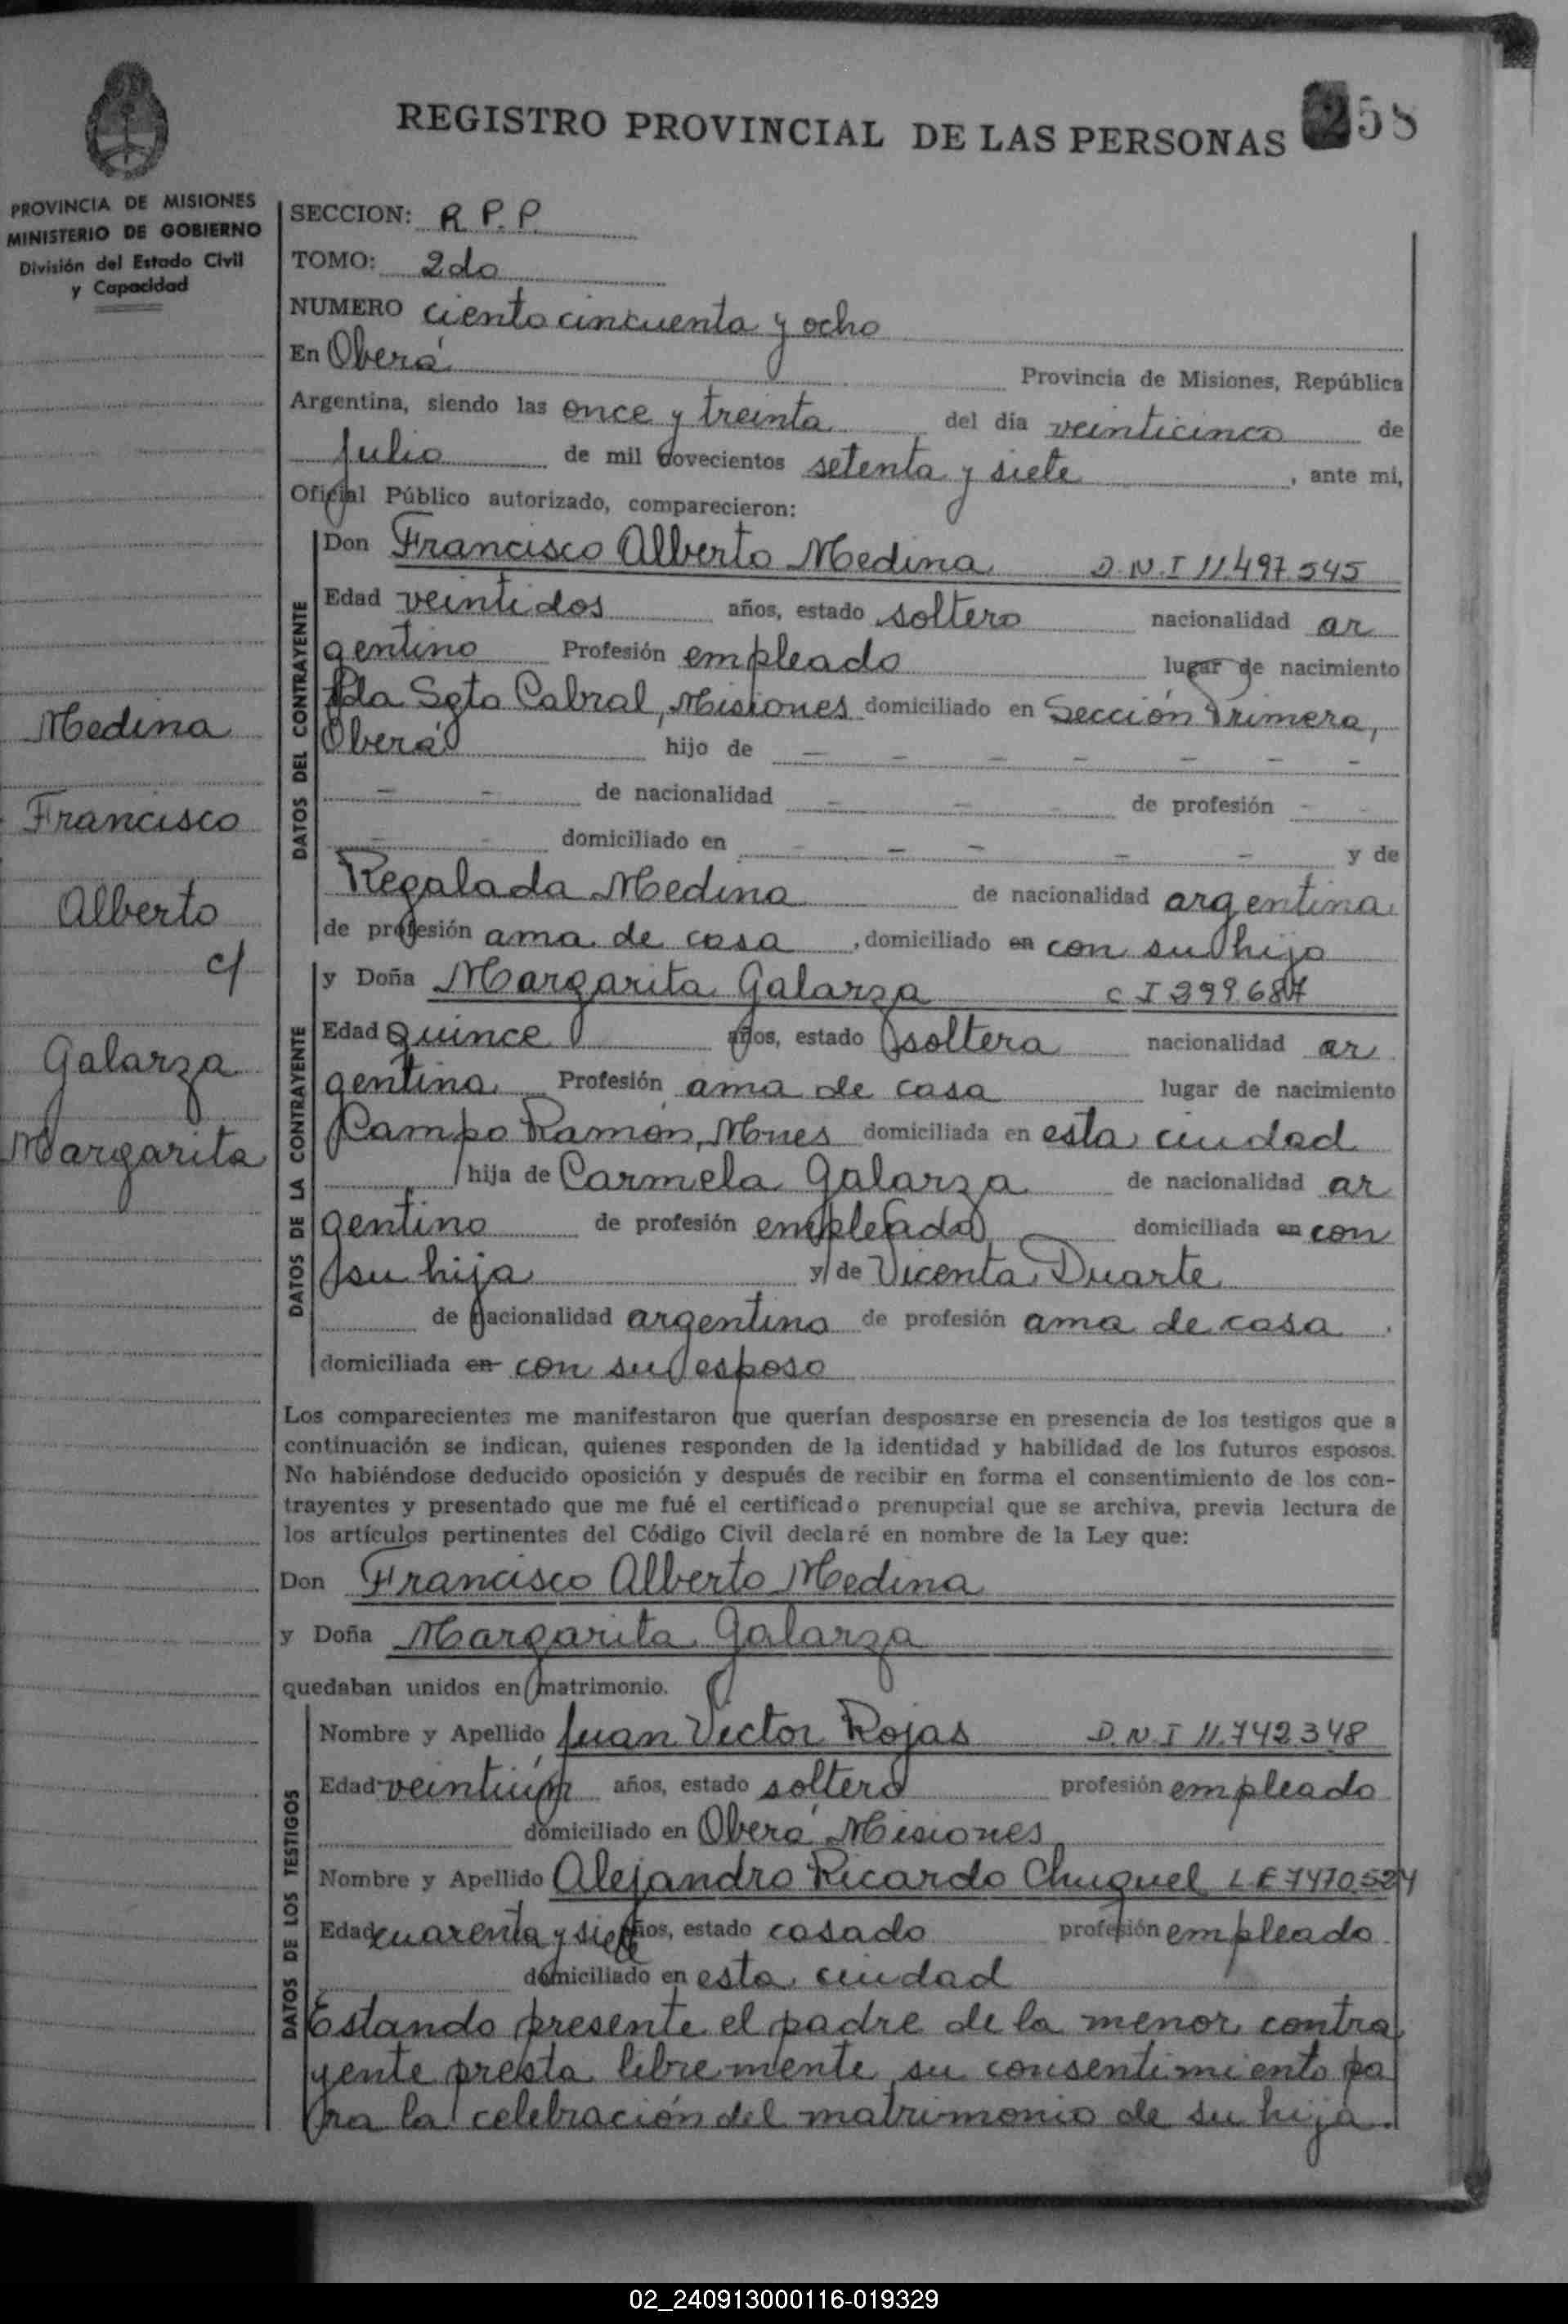 REGISTRO PROVINCIAL DE LAS PERSONAS 258
PROVINCIA DE MISIONES
MINISTERIO DE GOBIERNO
División del Estado Civil
y Capacidad
SECCION: R.P.P.
TOMO: 2do
NUMERO ciento cincuenta y ocho
En Oberá Provincia de Misiones, República
Argentina, siendo las once y treinta del día veinticinco de
Julio de mil novecientos setenta y siete, ante mi,
Oficial Público autorizado, comparecieron:
DATOS DEL CONTRAYENTE
Don Francisco Alberto Medina D.N.I 11.497.545
Edad veintidos años, estado soltero nacionalidad ar
gentino Profesión empleado lugar de nacimiento
Pda Sgto Cabral, Misiones domiciliado en Sección Primera,
Oberá hijo de - - - - - - -
- - de nacionalidad - - - de profesión - -
- - domiciliado en - - - - - y de
Regalada Medina de nacionalidad argentina
de profesión ama de casa, domiciliado en con su hijo
DATOS DE LA CONTRAYENTE
y Doña Margarita Galarza C I 399.687
Edad quince años, estado soltera nacionalidad ar
gentina Profesión ama de casa lugar de nacimiento
Campo Ramón, Mnes domiciliada en esta ciudad
hija de Carmelo Galarza de nacionalidad ar
gentino de profesión empleado domiciliada en con
su hija y de Vicenta Duarte
de nacionalidad argentina de profesión ama de casa.
domiciliada en con su esposo
Los comparecientes me manifestaron que querían desposarse en presencia de los testigos que a
continuación se indican, quienes responden de la identidad y habilidad de los futuros esposos.
No habiéndose deducido oposición y después de recibir en forma el consentimiento de los con-
trayentes y presentado que me fué el certificado prenupcial que se archiva, previa lectura de
los artículos pertinentes del Código Civil declaré en nombre de la Ley que:
Don Francisco Alberto Medina
y Doña Margarita Galarza
quedaban unidos en matrimonio.
DATOS DE LOS TESTIGOS
Nombre y Apellido Juan Victor Rojas D.N.I 11.742.348
Edad veintiún años, estado soltero profesión empleado
domiciliado en Oberá Misiones
Nombre y Apellido Alejandro Ricardo Chuquel L.E 7470.524
Edad cuarenta y siete años, estado casado profesión empleado
domiciliado en esta ciudad
Estando presente el padre de la menor contra
yente presta libremente su consentimiento pa
ra la celebración del matrimonio de su hija.
Medina
Francisco
Alberto
c/
Galarza
Margarita
02_240913000116-019329